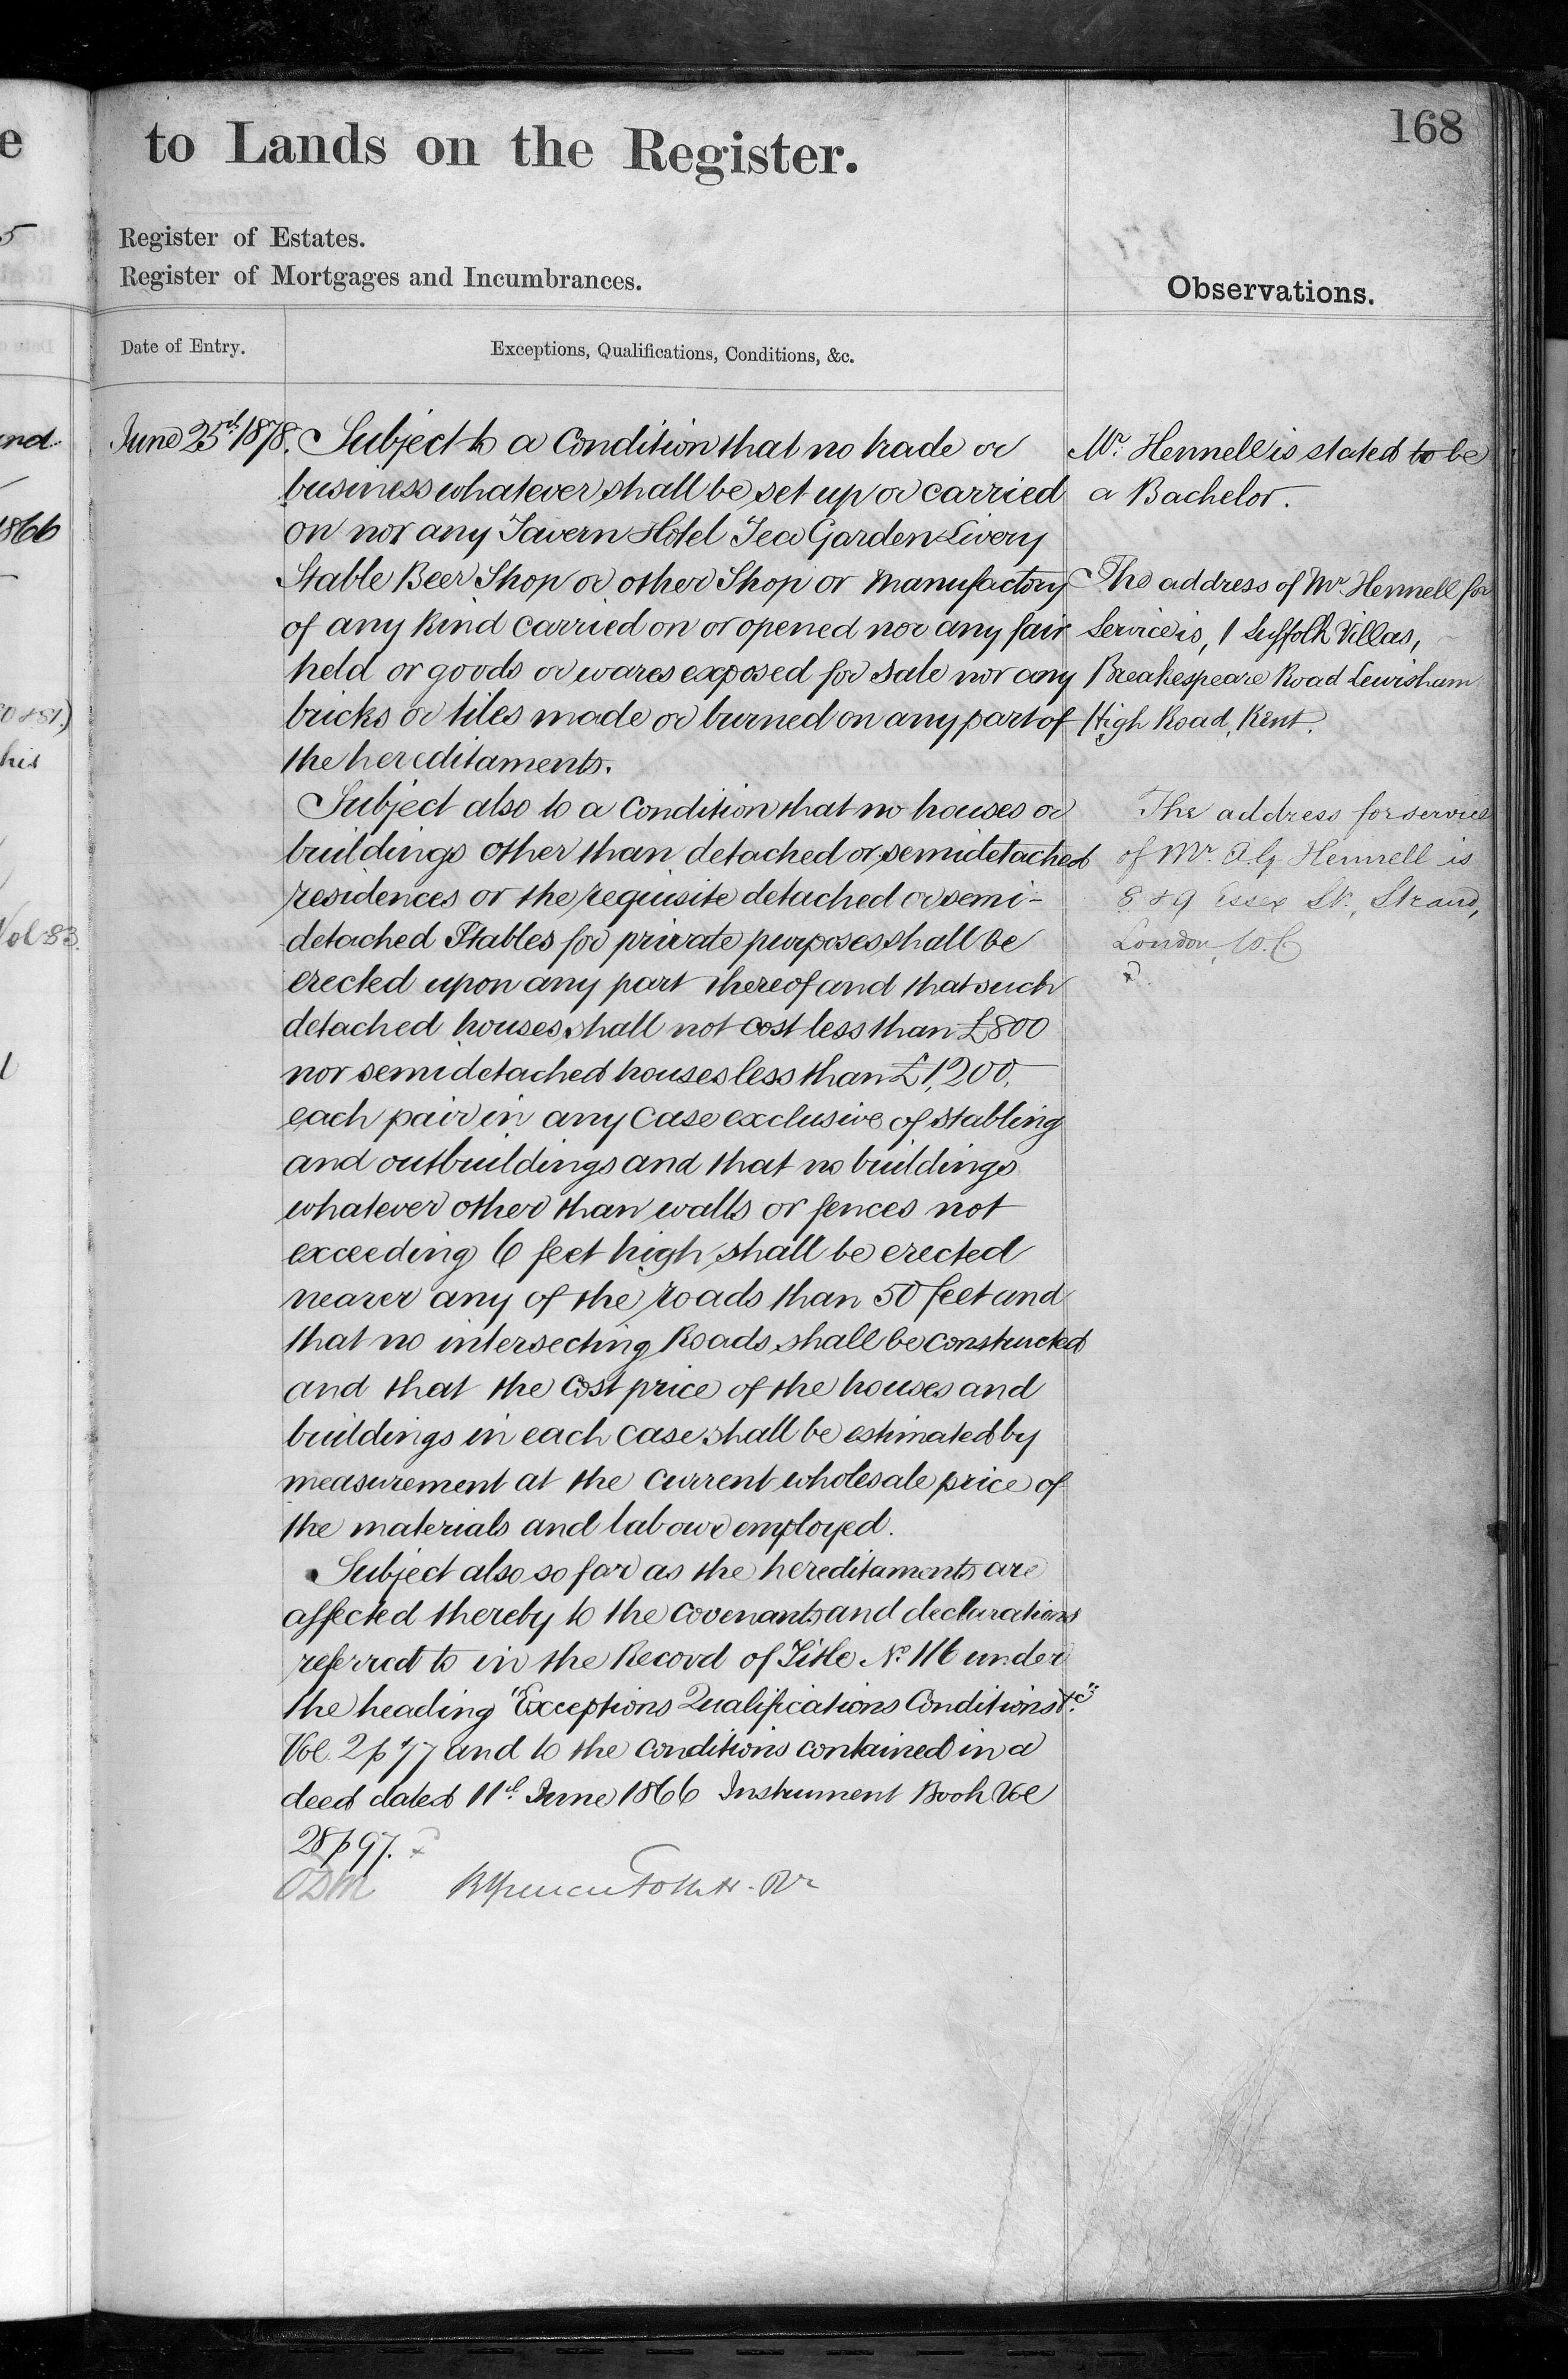 168
to Lands on the Register.
Register of Estates.
Register of Mortgages and Incumbrances.
Observations.
Date of Entry.
Exceptions, Qualifications, Conditions, &c.
June 25th 1878.
Subject to a Condition that no trade or
business whatever shall be set up or carried
on nor any Tavern Hotel Tea Garden Livery
Stable Beer Shop or other Shop or Manufactory
of any kind carried on or opened nor any fair
held or goods or wares exposed for sale nor any
bricks or tiles made or burned on any part of
the hereditaments.
Subject also to a Condition that no houses or
buildings other than detached or semidetached
residences or the requisite detached or semi-
detached Stables for private purposes shall be
erected upon any part thereof and that such
detached houses shall not cost less than £800
nor semidetached houses less than £1,200,
each pair in any Case exclusive of stabling
and outbuildings and that no buildings
whatever other than walls or fences not
exceeding 6 feet high shall be erected
nearer any of the roads than 50 feet and
that no intersecting Roads shall be constructed
and that the Cost price of the houses and
buildings in each case shall be estimated by
measurement at the current wholesale price of
the materials and labour employed.
Subject also so far as the hereditaments are
affected thereby to the Covenants and declarations
referred to in the Record of Title No. 116 under
the heading "Exceptions Qualifications Conditions &c."
Vol. 2 p 77 and to the Conditions contained in a
deed dated 11th June 1866 Instrument Book Vol
28 p 97.
ODM
Mr. Hennell is stated to be
a Bachelor.
The address of Mr. Hennell for
Service is, 1 Suffolk Villas,
Breakespeare Road Lewisham
High Road, Kent.
The address for service
of Mr. A.G. Hennell is
8 & 9 Essex St., Strand,
London, W.C